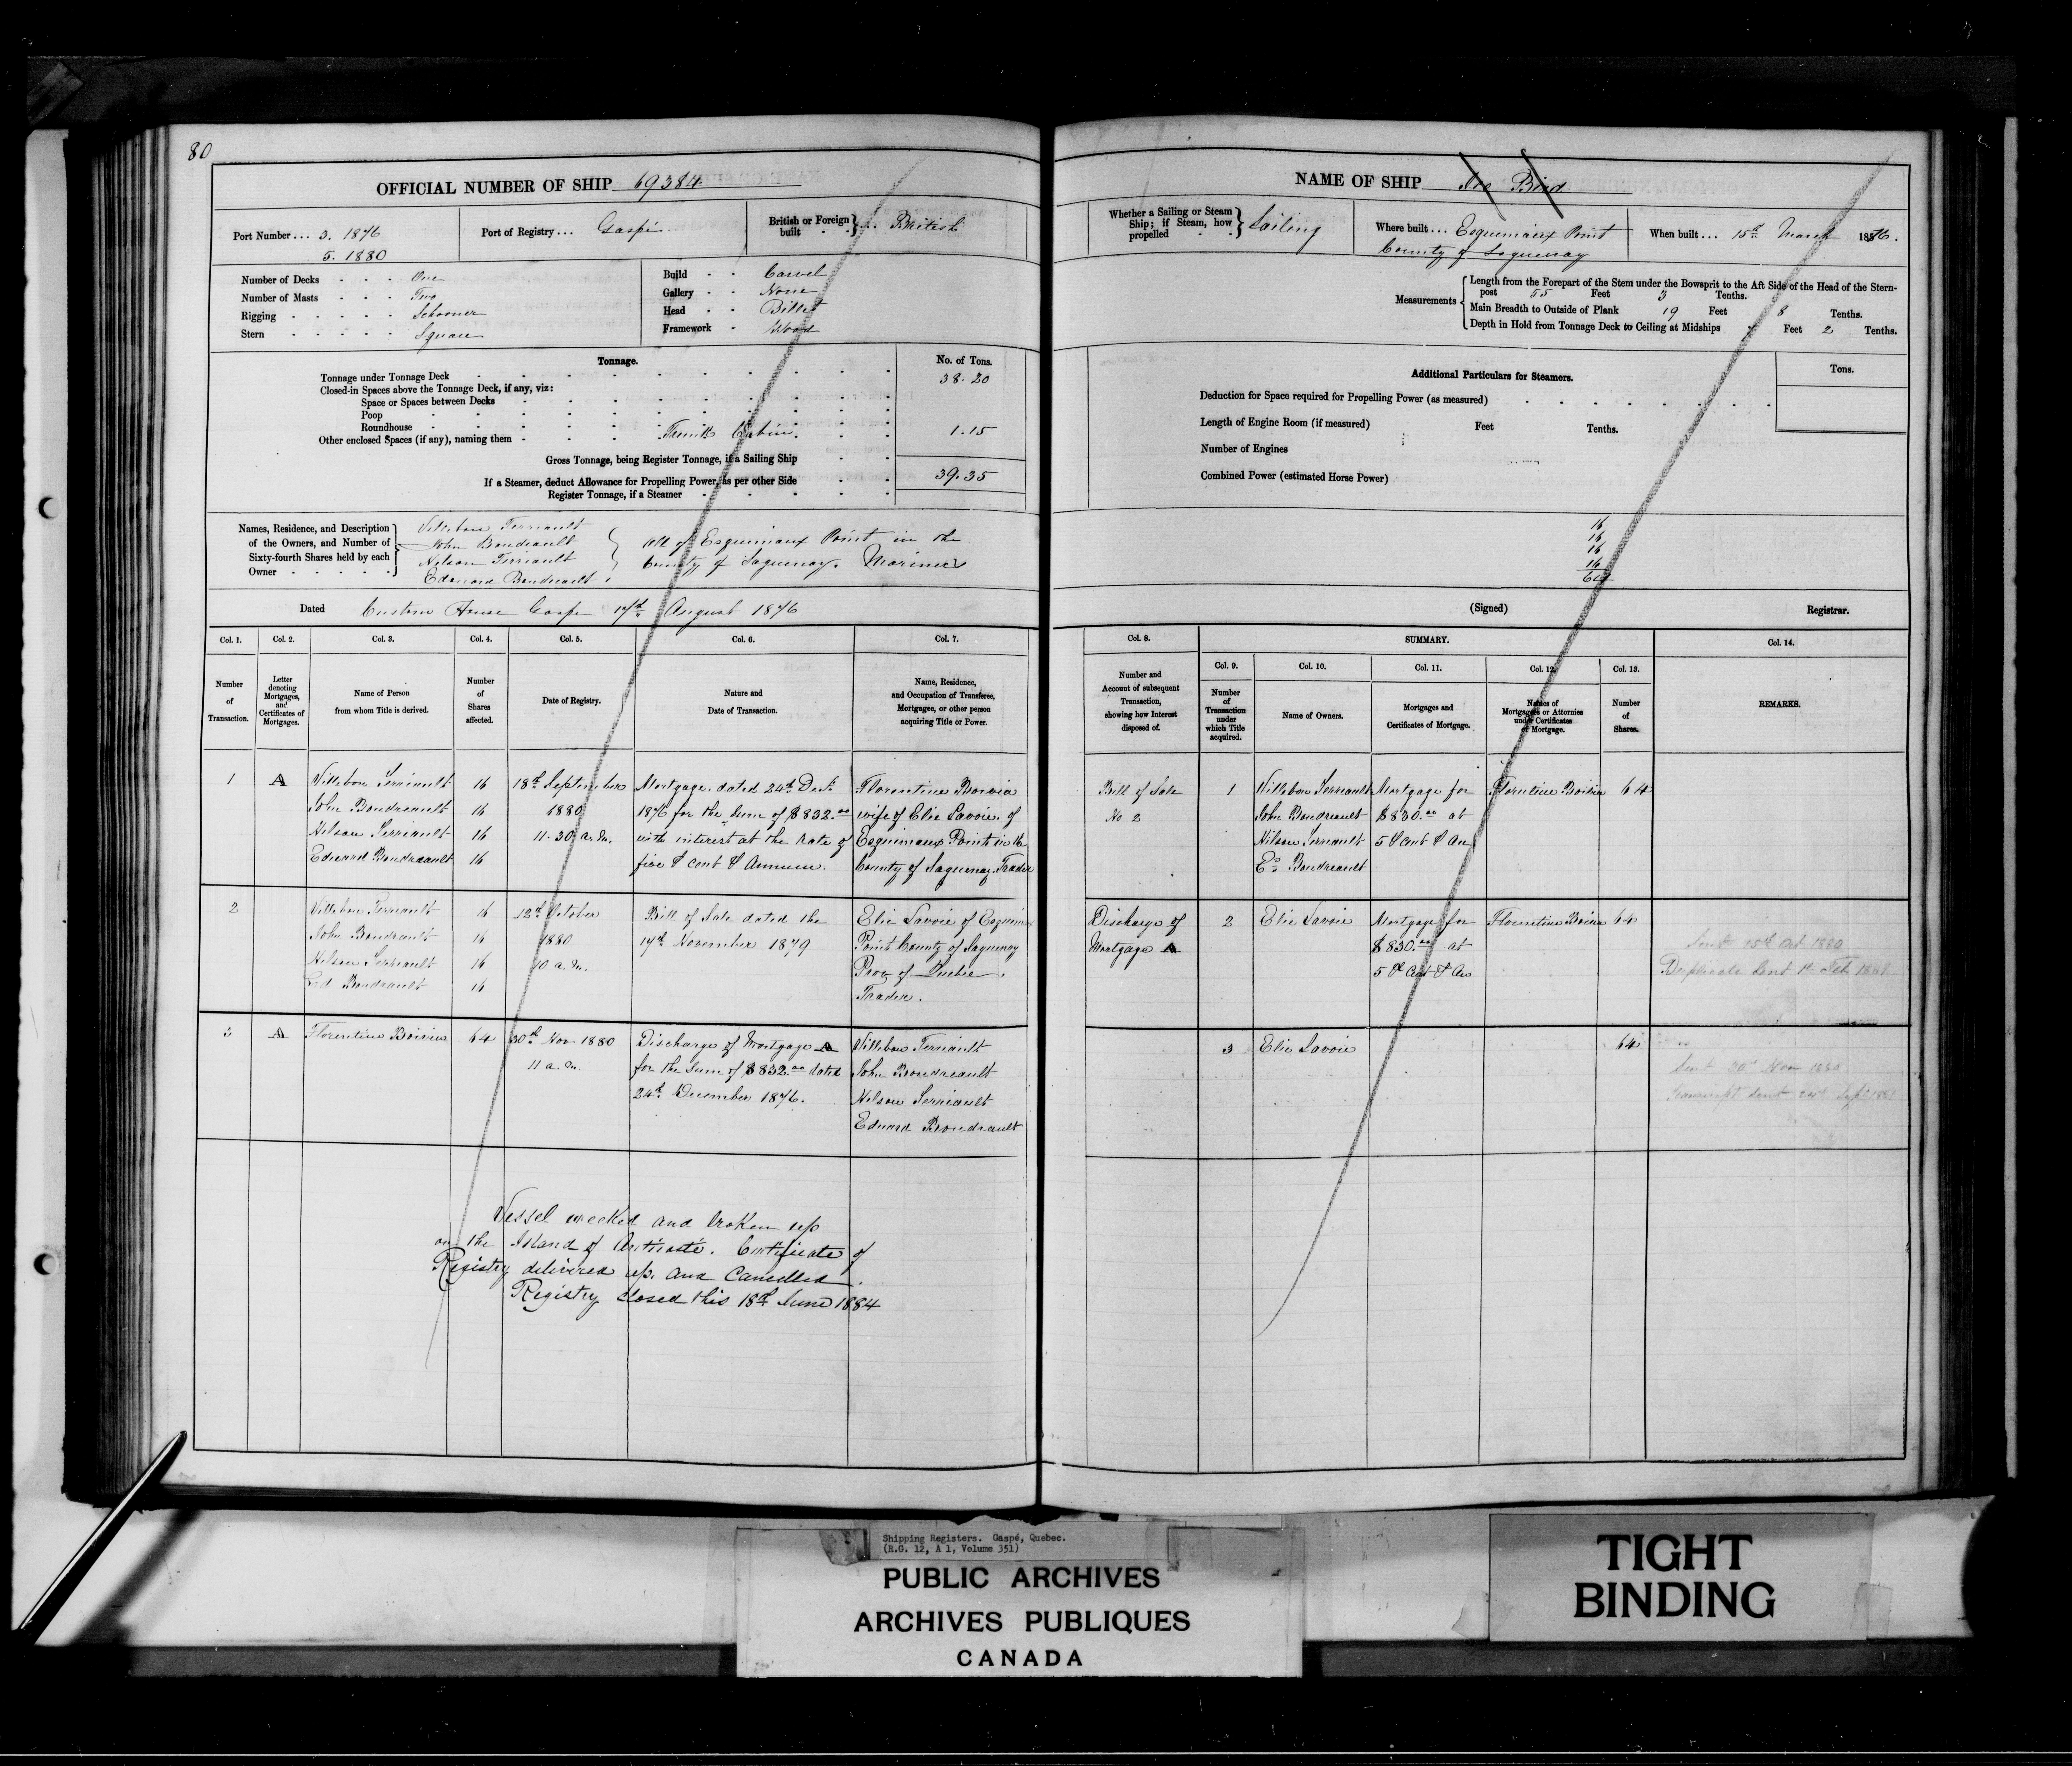 80
OFFICIAL NUMBER OF SHIP 69384
Port Number... 3. 1876
5. 1880
Port of Registry... Gaspé
British or Foreign built British
Number of Decks One
Number of Masts Two
Rigging Schooner
Stern Square
Build Carvel
Gallery None
Head Billet
Framework Wood
Tonnage.
No. of Tons.
Tonnage under Tonnage Deck 38.20
Closed-in Spaces above the Tonnage Deck, if any, viz:
Space or Spaces between Decks
Poop
Roundhouse
Other enclosed Spaces (if any), naming them Trunk Cabin. 1.15
Gross Tonnage, being Register Tonnage, if a Sailing Ship 39.35
If a Steamer, deduct Allowance for Propelling Power, as per other Side
Register Tonnage, if a Steamer
Names, Residence, and Description of the Owners, and Number of Sixty-fourth Shares held by each Owner
Villebon Terriault
John Boudreault
Nelson Terriault
Edouard Boudreault
All of Esquimaux Point in the
County of Saguenay. Mariners
Dated Custom House Gaspe 17th August 1876
Col. 1. Col. 2. Col. 3. Col. 4. Col. 5. Col. 6. Col. 7.
Number of Transaction.
Letter denoting Mortgages, and Certificates of Mortgages.
Name of Person from whom Title is derived.
Number of Shares affected.
Date of Registry.
Nature and Date of Transaction.
Name, Residence, and Occupation of Transferee, Mortgagee, or other person acquiring Title or Power.
1 A Villebon Terriault 16 18th September Mortgage dated 24th Dec. Florentine Boivin
John Boudreault 16 1880 1876 for the sum of $832.00 wife of Elie Lavoie of
Nelson Terriault 16 11.30 a.m. with interest at the rate of Esquimaux Point in the
Edward Boudreault 16 five P cent P Annum. County of Saguenay. Trader
2 Villebon Terriault 16 12th October Bill of Sale dated the Elie Lavoie of Esquim
John Boudreault 16 1880 17th November 1879 Point County of Saguenay
Nelson Terriault 16 10 a.m. Prov of Quebec.
Ed Boudreault 16 Trader.
3 A Florentine Boivin 64 30th Nov 1880 Discharge of Mortgage A Villebon Terriault
11 a.m. for the sum of $832.00 dated John Boudreault
24th December 1876. Nelson Terriault
Edward Boudreault
Vessel wrecked and broken up
on the Island of Anticosti. Certificate of
Registry delivered up and Cancelled.
Registry closed this 18th June 1884
NAME OF SHIP Bird
Whether a Sailing or Steam Ship; if Steam, how propelled Sailing
Where built... Esquimaux Point
County of Saguenay
When built... 15th March 1876.
Measurements
Length from the Forepart of the Stem under the Bowsprit to the Aft Side of the Head of the Stern-
post 55 Feet 3 Tenths.
Main Breadth to Outside of Plank 19 Feet 8 Tenths.
Depth in Hold from Tonnage Deck to Ceiling at Midships 7 Feet 2 Tenths.
Additional Particulars for Steamers.
Tons.
Deduction for Space required for Propelling Power (as measured)
Length of Engine Room (if measured) Feet Tenths.
Number of Engines
Combined Power (estimated Horse Power)
16
16
16
16
64
(Signed) Registrar.
Col. 8. SUMMARY. Col. 14.
Col. 9. Col. 10. Col. 11. Col. 12. Col. 13.
Number and Account of subsequent Transaction, showing how Interest disposed of.
Number of Transaction under which Title acquired.
Name of Owners.
Mortgages and Certificates of Mortgage.
Names of Mortgagees or Attornies under Certificates of Mortgage.
Number of Shares.
REMARKS.
Bill of Sale 1 Villebon Terriault Mortgage for Florentine Boivin 64
No 2 John Boudreault $830.00 at
Nelson Terriault 5 P cent P An
Ed Boudreault
Discharge of 2 Elie Lavoie Mortgage for Florentine Boivin 64
Mortgage A $830.00 at
5 P Cent P An
Duplicate Sent
3 Elie Lavoie 64
Sent 30th Nov 1880
Transcript sent
Shipping Registers. Gaspé, Quebec.
(R.G. 12, A 1, Volume 351)
PUBLIC ARCHIVES
ARCHIVES PUBLIQUES
CANADA
TIGHT
BINDING